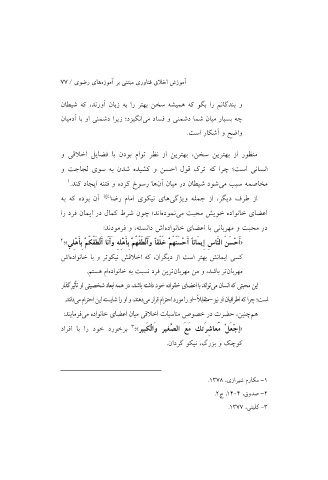 آموزش اخلاق فناوری مبتنی بر آموزه‌های رضوی / ۷۷
و بندگانم را بگو که همیشه سخن بهتر را به زبان آورند، که شیطان
چه بسیار میان شما دشمنی و فساد می‌انگیزد؛ زیرا دشمنی او با آدمیان
واضح و آشکار است.
منظور از بهترین سخن، بهترین از نظر توام بودن با فضایل اخلاقی و
انسانی است؛ چرا که ترک قول احسن و کشیده شدن به سوی لجاجت و
مخاصمه سبب می‌شود شیطان در میان آن‌ها رسوخ کرده و فتنه ایجاد کند.۱
از طرف دیگر، از جمله ویژگی‌های نیکوی امام رضا آن بوده که به
اعضای خانواده خویش محبت می‌نموده‌اند؛ چون شرط کمال در ایمان فرد را
در محبت و مهربانی با اعضای خانواده‌اش دانسته، و فرمودند:
«أَحْسَنُ النَّاسِ إِیمَاناً أَحْسَنُهُمْ خُلُقاً وَأَلْطَفُهُمْ بِأَهْلِهِ وَأَنَا أَلْطَفُكُمْ بِأَهْلِي»؛۲
کسی ایمانش بهتر است از دیگران، که اخلاقش نیکوتر و با خانواده‌اش
مهربان‌تر باشد، و من مهربان‌ترین فرد نسبت به خانواده‌ام هستم.
این محبتی که انسان می‌تواند با اعضای خانواده خود داشته باشد، در همه ابعاد شخصیتی او تأثیرگذار
است؛ چرا که اطرافیان او نیز -متقابلاً- او را مورد احترام قرار می‌دهند، و او را شایسته این احترام می‌دانند.
هم‌چنین، حضرت در خصوص مناسبات اخلاقی میان اعضای خانواده می‌فرمایند:
«اِجْعَلْ مُعَاشَرَتَكَ مَعَ الصَّغِيرِ وَالْكَبِيرِ»؛۳ برخورد خود را با افراد
کوچک و بزرگ، نیکو گردان.
۱- مکارم شیرازی، ۱۳۷۸.
۲- صدوق، ۱۴۰۴، ج۲.
۳- کلینی، ۱۳۷۷.